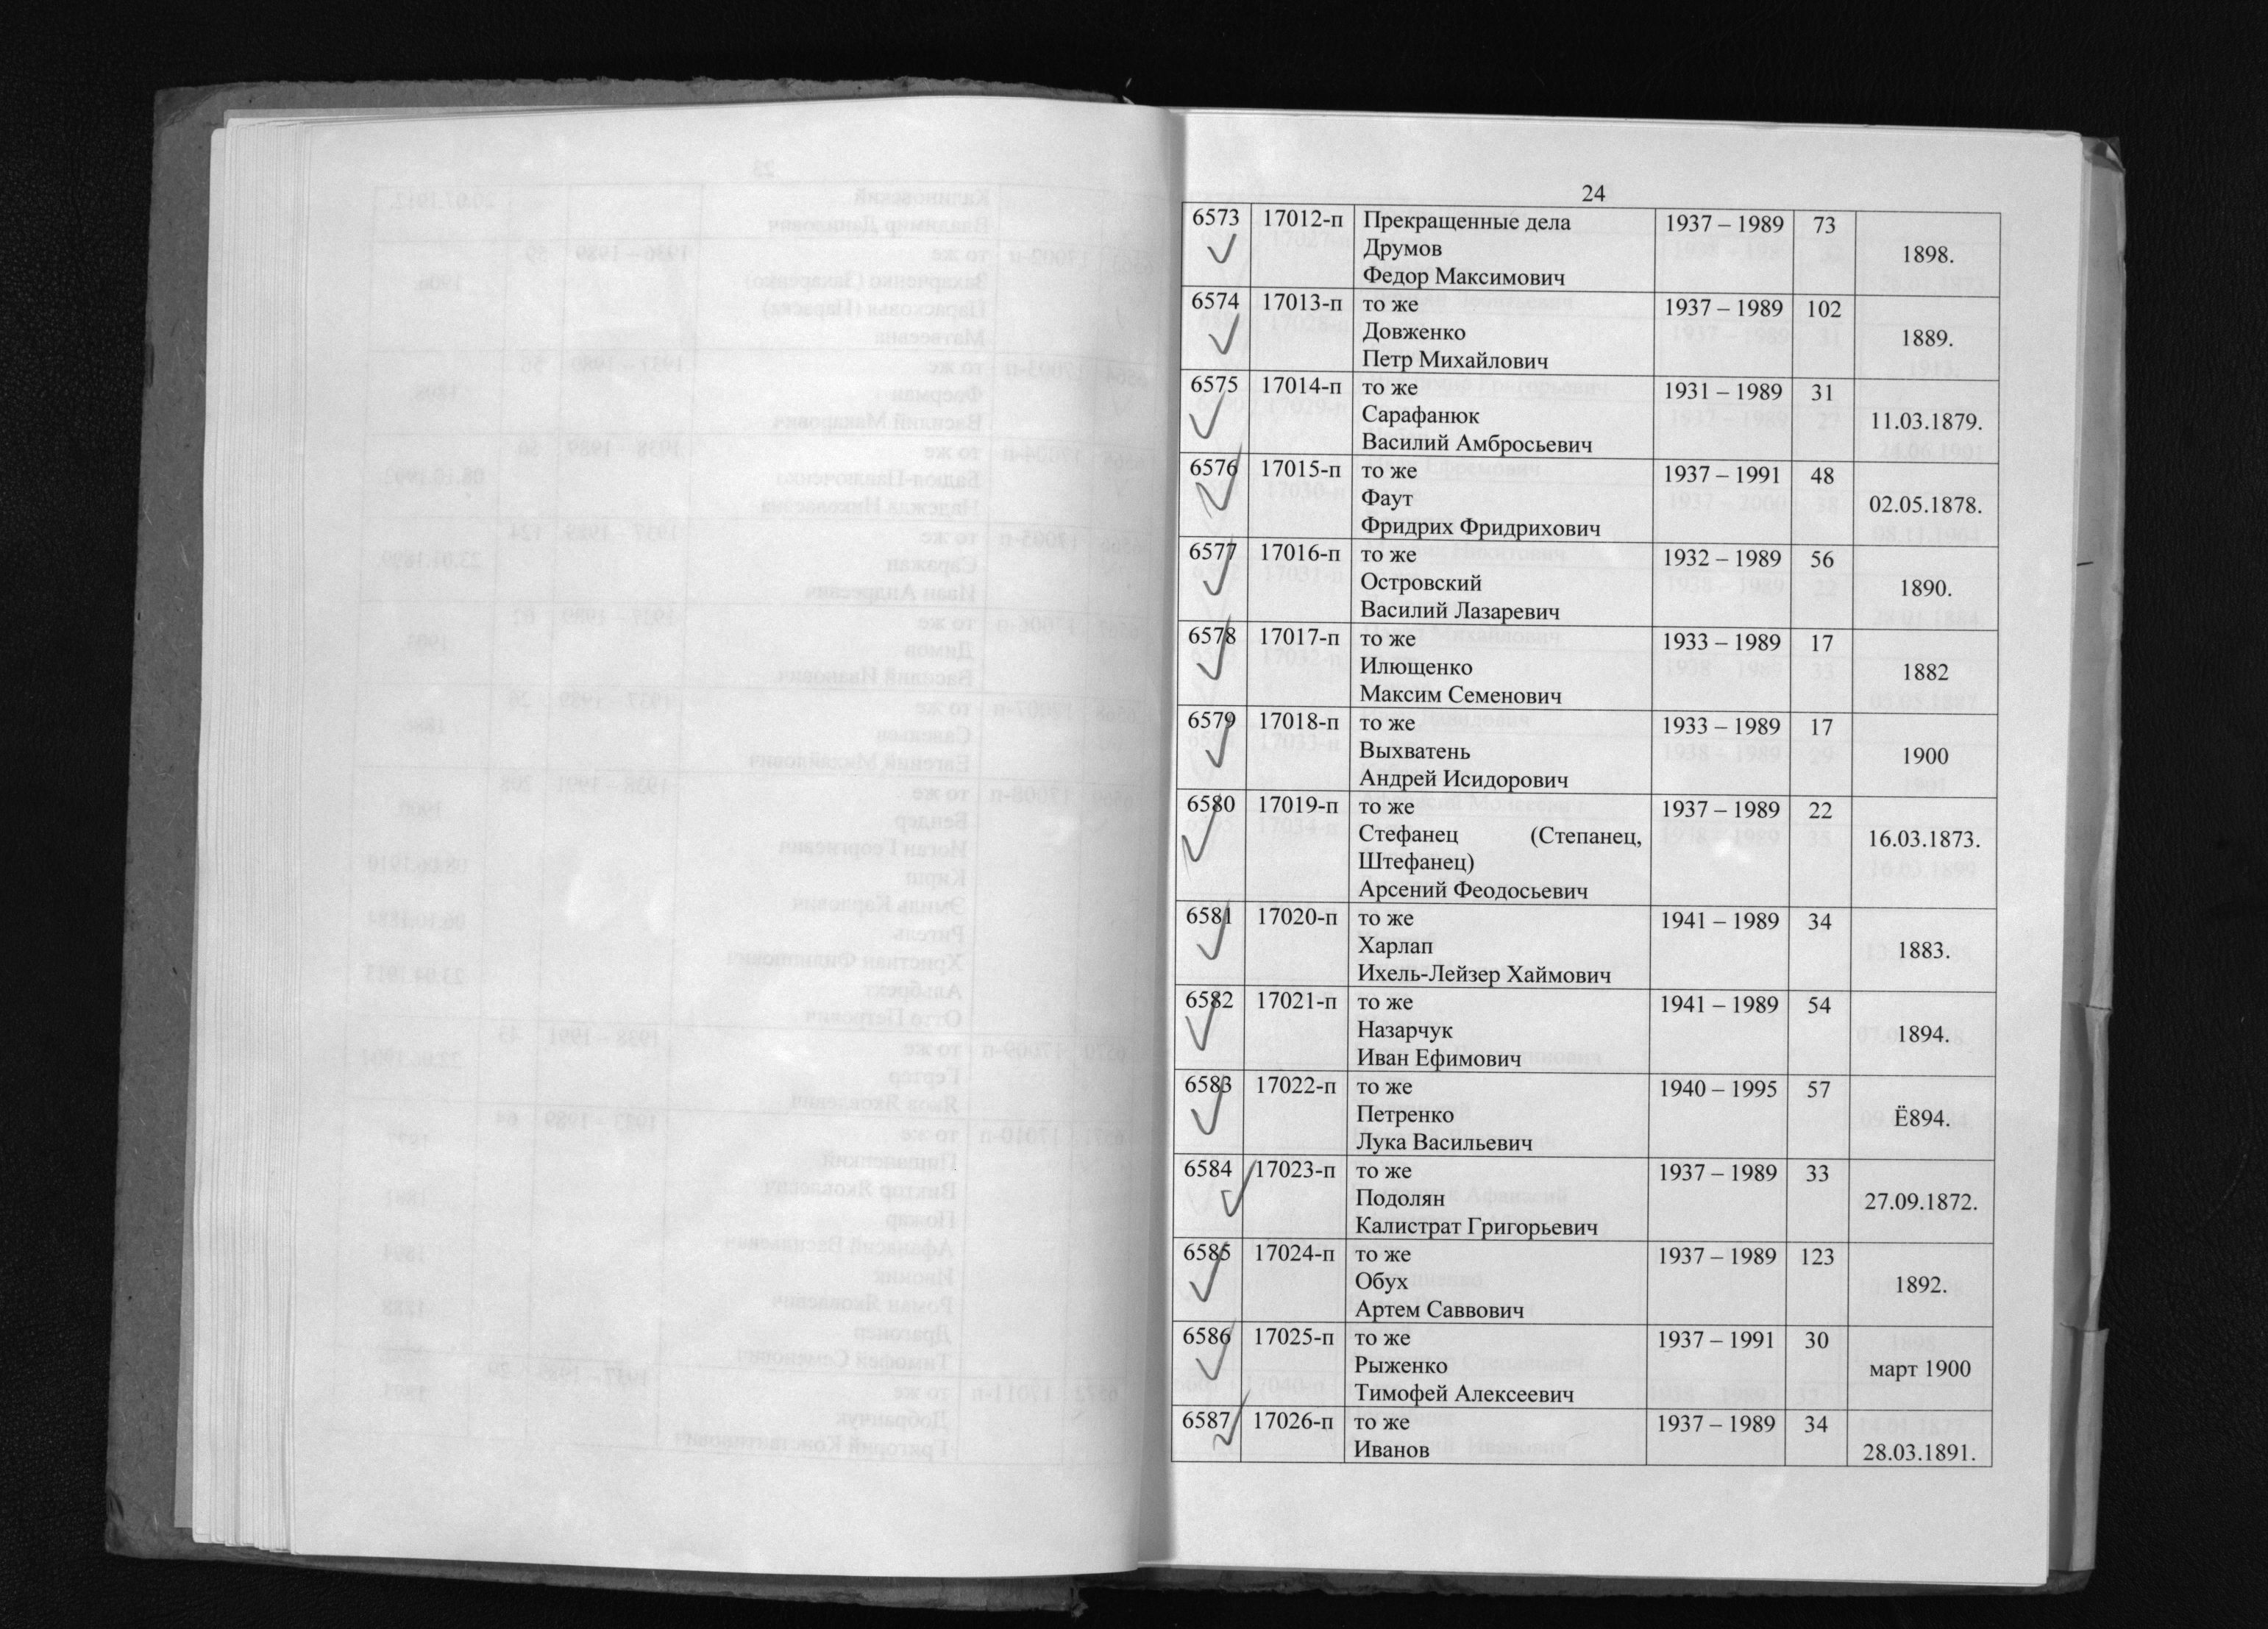 24
6573 17012-п Прекращенные дела 1937 – 1989 73
Друмов
1898.
Федор Максимович
6574 17013-п то же 1937 – 1989 102
Довженко
1889.
Петр Михайлович
6575 17014-п то же 1931 – 1989 31
Сарафанюк
11.03.1879.
Василий Амбросьевич
6576 17015-п то же 1937 – 1991 48
Фаут
02.05.1878.
Фридрих Фридрихович
6577 17016-п то же 1932 – 1989 56
Островский
1890.
Василий Лазаревич
6578 17017-п то же 1933 – 1989 17
Илющенко
1882
Максим Семенович
6579 17018-п то же 1933 – 1989 17
Выхватень
1900
Андрей Исидорович
6580 17019-п то же 1937 – 1989 22
Стефанец (Степанец,
16.03.1873.
Штефанец)
Арсений Феодосьевич
6581 17020-п то же 1941 – 1989 34
Харлап
1883.
Ихель-Лейзер Хаймович
6582 17021-п то же 1941 – 1989 54
Назарчук
1894.
Иван Ефимович
6583 17022-п то же 1940 – 1995 57
Петренко
Ё894.
Лука Васильевич
6584 17023-п то же 1937 – 1989 33
Подолян
27.09.1872.
Калистрат Григорьевич
6585 17024-п то же 1937 – 1989 123
Обух
1892.
Артем Саввович
6586 17025-п то же 1937 – 1991 30
Рыженко
март 1900
Тимофей Алексеевич
6587 17026-п то же 1937 – 1989 34
Иванов
28.03.1891.